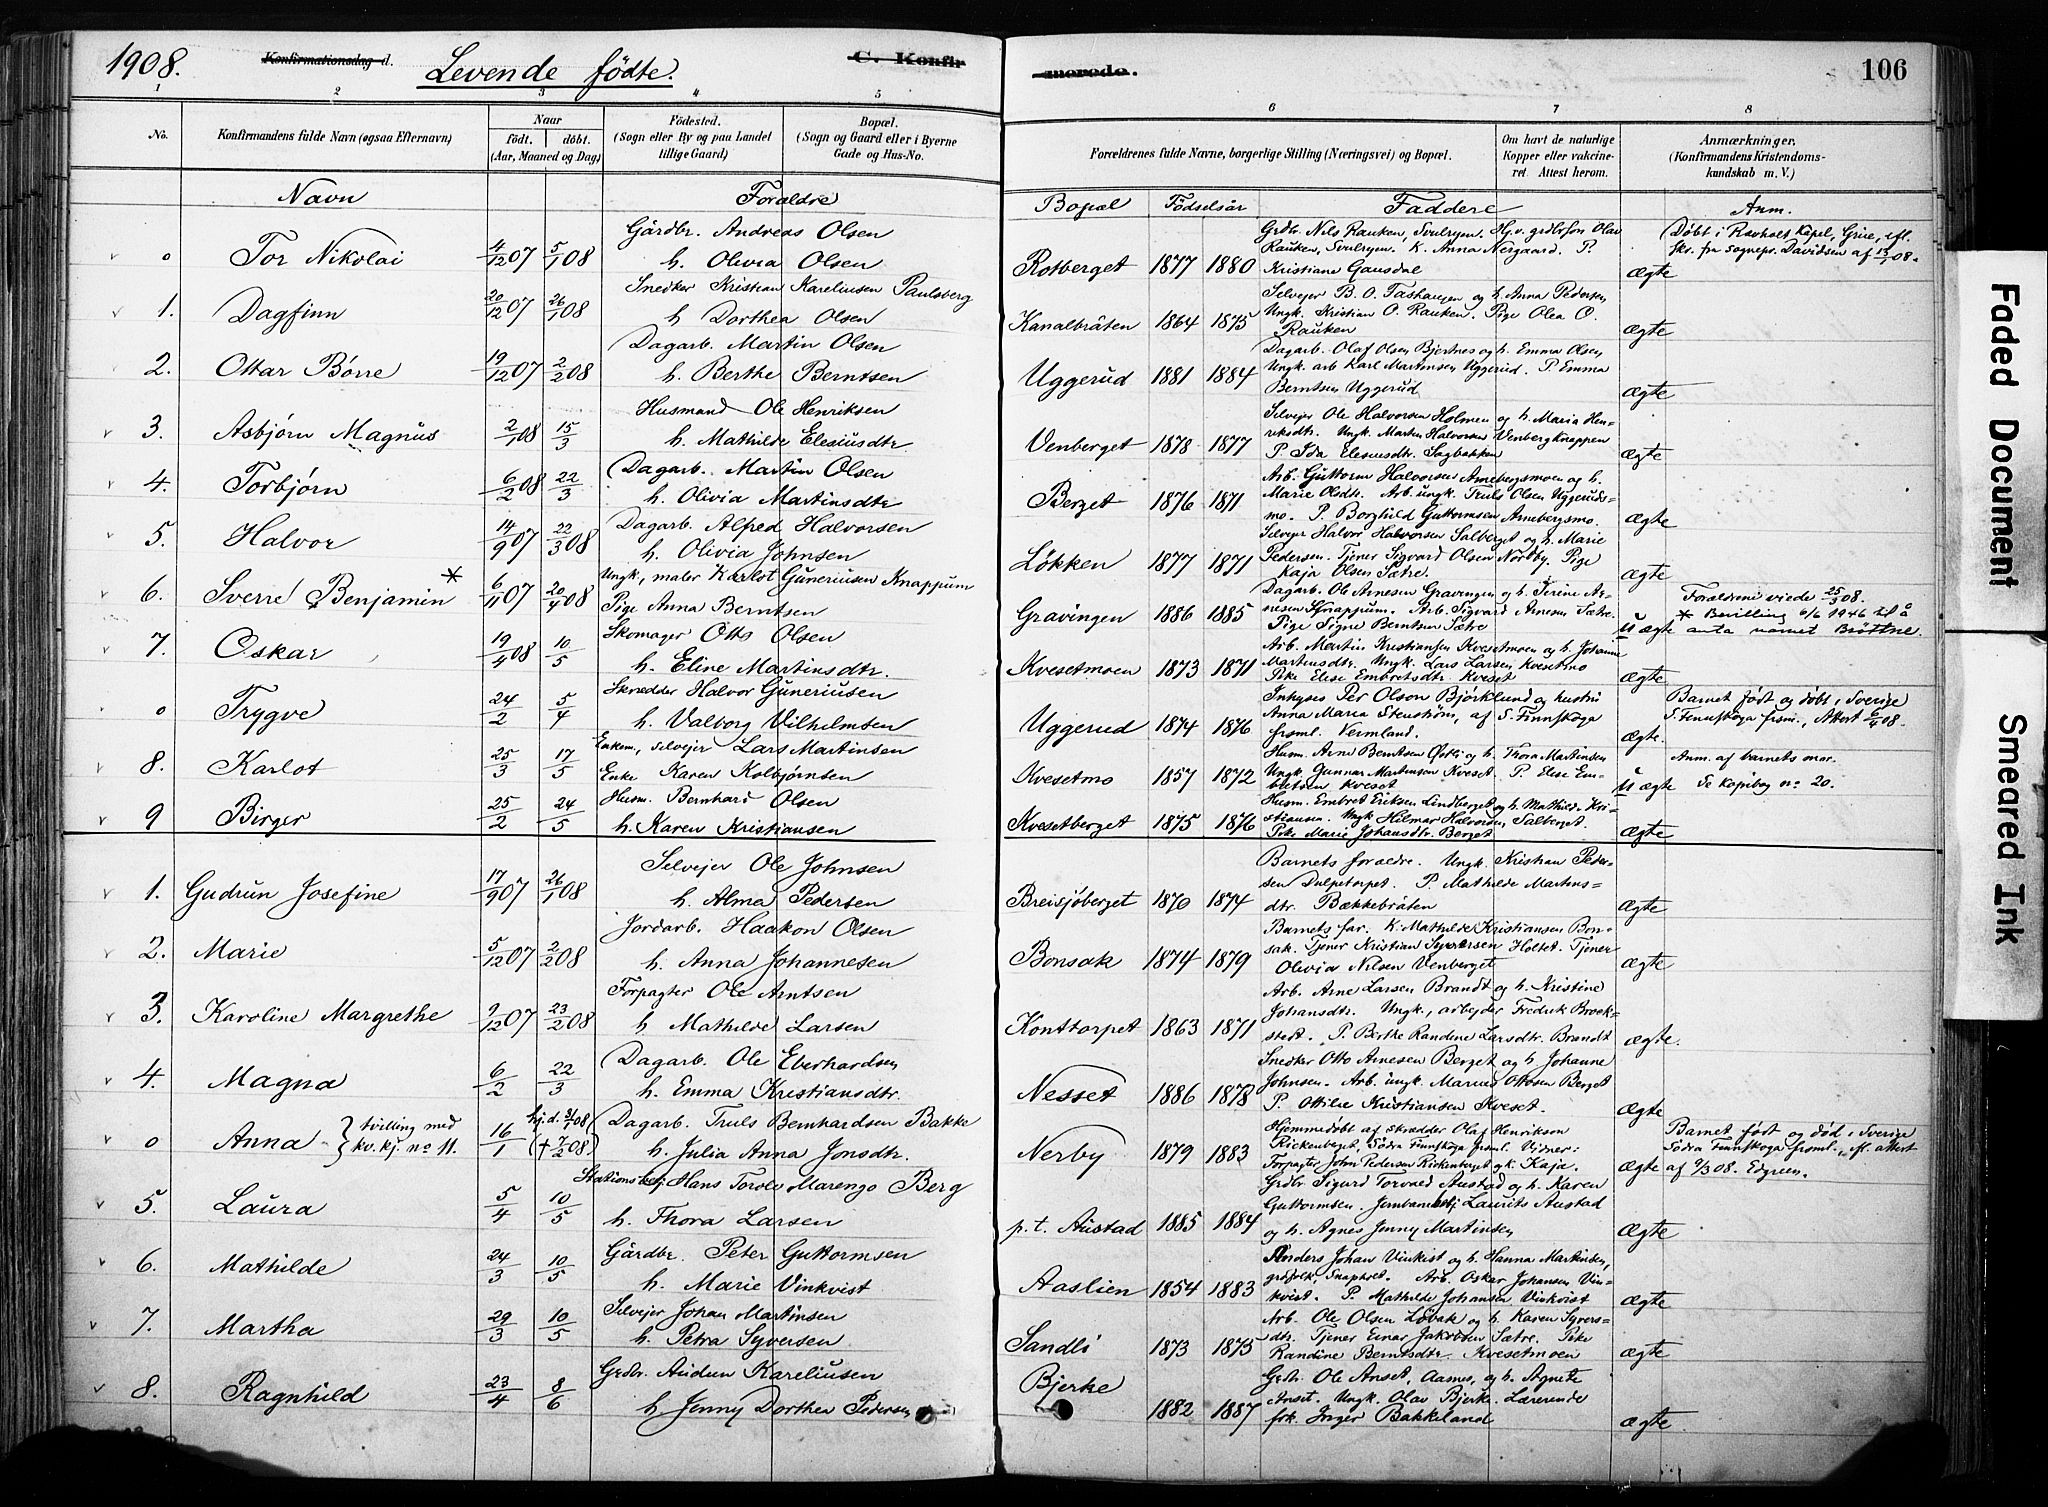 1908. Konfirmationsdag d. Levende fødte. C. Konfirmerede. 106
1 2 3 4 5 6 7 8
No. Konfirmandens fulde Navn (ogsaa Efternavn) Naar født. døbt. (Aar, Maaned og Dag) Fødested. (Sogn eller By og paa Landet tillige Gaard) Bopæl. (Sogn og Gaard eller i Byerne Gade og Hus-No. Forældrenes fulde Navne, borgerlige Stilling (Næringsvei) og Bopæl. Om havt de naturlige Kopper eller vakcineret Attest herom. Anmærkninger. (Konfirmandens Kristendomskundskab m. V.)
Navn Forældre Bopæl Fødselsår Faddere Anm.
0 Tor Nikolai 4/12 07 5/1 08 Gårdbr. Andreas Olsen h. Olivia Olsen Rotberget 1877 1880 Grdb. Nils Rauken, Svulryen. Olav Rauken, Svulryen. K. Anna Nesgaard. P. Kristiane Gausdal ægte Døbt i Revholt Kapel, Grue, efl. skr. fra sognepr. Davidsen af 13/1 08.
1. Dagfinn 20/12 07 26/1 08 Snedker Kristian Kareliusen Paulsberg h Dorthea Olsen Kanalbråten 1864 1875 Selvejer B. O. Tashaugen og h. Anna Pedersen Ungk. Kristian O. Rauken. Pige Olea O. Rauken ægte
2. Ottar Børre 19/12 07 2/2 08 Dagarb. Martin Olsen h. Berthe Berntsen Uggerud 1881 1884 Dagarb. Olaf Olsen Bjertnes og h. Emma Olsen Ungk. arb Karl Martinsen Uggerud. P. Emma Berntsen Uggerud ægte
3. Asbjørn Magnus 2/1 08 15/3 Husmand Ole Henriksen h. Mathilde Elesiusdtr Venberget 1878 1877 Selvejer Ole Halvorsen Holmen og h. Maria Henriksdtr. Ungk. Martin Halvorsen Venbergknappen P. Ida Elesiusdtr. Sagbakken ægte
4. Torbjørn 6/2 08 22/3 Dagarb. Martin Olsen h. Olivia Martinsdtr Berget 1876 1871 Arb. Guttorm Halvorsen Arnebergsmoen og h. Marie Olsdtr. Arb. ungk. Truls Olsen Uggerudsmo. P. Borghild Guttormsen Arnebergsmo. ægte
5. Halvor 14/9 07 22/3 08 Dagarb. Alfred Halvorsen h. Olivia Johnsen Løkken 1877 1871 Selvejer Halvor Halvorsen Salberget og h. Marie Pedersen. Tjener Sigvard Olsen Nordby. Pige Kaja Olsen Sætre. ægte
6. Sverre Benjamin * 6/11 07 20/4 08 Ungk, maler Karlot Guneriusen Knappum Pige Anna Berntsen Gravingen 1886 1885 Dagarb. Ole Arnesen Gravingen og h. Serine Arnesen Knappum. Arb. Sigvard Arnesen Sætre. Pige Signe Berntsen Sætre Uægte Forældrene viede 25/3 08. * Bevilling 6/6 1946 til å anta navnet Brøttne.
7. Oskar 19/4 08 10/5 Skomager Otto Olsen h. Eline Martinsdtr. Kvesetmoen 1873 1871 Arb. Martin Kristiansen Kvesetmoen og h. Johanne Martinsdtr. Ungk. Lars Larsen, Kvesetmo Pike Elise Embretsdtr Kveset ægte
0 Trygve 24/2 5/4 Skredder Halvor Guneriusen h. Valborg Vilhelmsen Uggerud 1874 1876 Inhyses Per Olson Bjørklund og hustru Anna Maria Stenstrøm, af S. Finnskoga frsml. Vermland. ægte. Barnet født og døbt i Sverige S. Finnskoga frsm., Attest 6/4 08.
8. Karlot 25/3 17/5 Enkem, selvejer Lars Martinsen Enke Karen Kolbjørnsen Kvesetmo 1857 1872 Husm. Arne Berntsen Østli og h. Thora Martinsen Ungk. Gunnar Martinsen Kveset. P. Elise Embretsen Kveset Uægte Anm. af barnets mor. Se kopibog no 20.
9 Birger 25/2 24/5 Husm. Bernhard Olsen h. Karen Kristiansen Kvesetberget 1875 1876 Husm. Embret Eriksen Lindberget og h. Mathilde Kristiansen. Ungk Hilmar Halvorsen, Salberget. Pike Marie Johansdtr. Berget ægte
1. Gudrun Josefine 17/9 07 26/1 08 Selvejer Ole Johnsen h. Alma Pedersen Breisjøberget 1870 1874 Barnets forældre. Ungk. Kristian Pedersen Dulpetorpet. P. Mathilde Martinsdtr. Bækkebråten ægte
2. Marie 5/12 07 2/2 08 Jordarb. Haakon Olsen h. Anna Johannesen Bonsak 1874 1879 Barnets far. K. Mathilde Kristiansen Bonsak. Tjener Kristian Syversen Holtet. Tjener Olivia Nilsen Venberget ægte
3. Karoline Margrethe 9/12 07 23/2 08 Forpagter Ole Arntsen h Mathilde Larsen Konttorpet 1863 1871 Arb. Arne Larsen Brandt og h. Kristine Johansdtr. Ungk, arbejder Fredrik Brockstedt. P. Berthe Randine Larsdtr. Brandt ægte.
4. Magna 6/2 22/3 Dagarb. Ole Eberhardsen h. Emma Kristiansdtr. Nesset 1886 1878 Snedker Otto Arnesen Berget og h. Johanne Johnsen. Arb. ungk. Marius Ottosen Berget P. Ottilie Kristiansen Kveset. ægte
0 Anna tvilling med kv. kj. no 11. 16/1 hj. d. 3/1 08 (+ 7/2 08) Dagarb. Truls Bernhardsen Bakke h. Julia Anna Jonsdtr. Nerby 1879 1883 Hjemmedøbt af skrædder Olaf Henrikson Rickenberget, Södra Finnskoga frsml. Vidner: Forpagter John Pedersen Rickenberget og k. Kaja. ægte Barnet født og død i Sverige Södra Finnskoga frsml., efl. attest af 9/3 08. Edgren.
5. Laura 5/4 10/5 Stationsbetj Hans Torolv Marengo Berg h. Thora Larsen p. t. Austad 1885 1884 Grdbr Sigurd Torvald Austad og h. Karen Guttormsen. Jernbanebetj Laurits Austad og h. Agnes Jenny Martinsen ægte
6. Mathilde 24/3 10/5 Gårdbr. Peter Guttormsen h. Marie Vinkvist Aaslien 1854 1883 Anders Johan Vinkist og h. Hanna Martinsen, grdfolk, Snapholt. Arb. Oskar Johansen Vinkvist. P. Mathilde Johansen Vinkvist ægte
7. Martha 29/3 10/5 Selvejer Johan Martinsen h. Petra Syversen Sandli 1873 1875 Arb. Ole Olsen Løbak og h. Karen Syversdtr. Tjener Einar Jakobsen Sætre. Pike Randine Berntsdtr. Kvesetmoen ægte
8. Ragnhild 23/4 8/6 Grdbr. Audun Kareliusen h Jenny Dorthea Pedersen Bjerke 1882 1887 Grdr. Ole Anset, Aasnes, og h. Agnete Anset. Ungk. Olav Bjerke. Lærerinde frk. Inger Bakkeland ægte
Faded Document
Smeared Ink